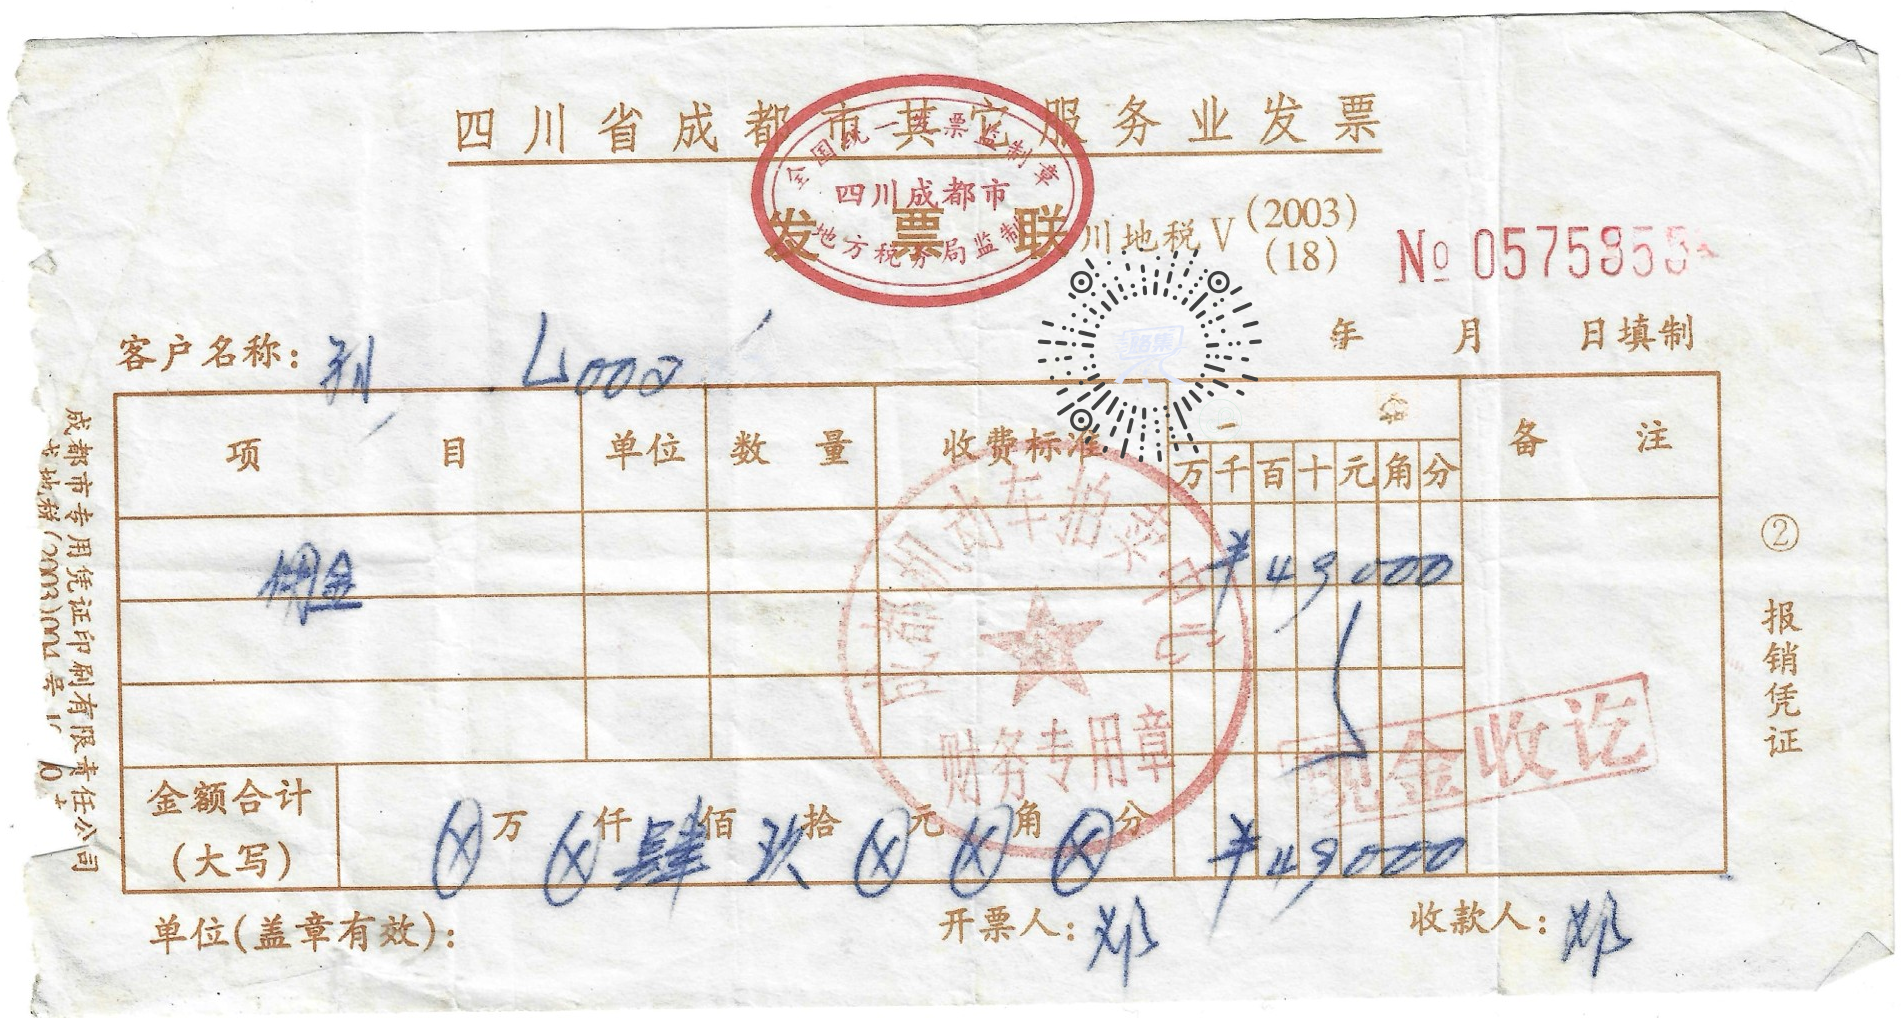 四川省成都市其它服务业发票
全国统一发票监制章
四川成都市
地方税务局监制
发票联
川地税V(2003)
(18)
№ 0575855
年 月 日填制
客户名称: 4000
项目 单位 数量 收费标准 金 备注
万 千 百 十 元 角 分
佣金 ¥49000
成都机动车拍卖中心
财务专用章
现金收讫
金额合计
(大写)
⊗万⊗仟肆佰玖拾⊗元⊗角⊗分 ¥49000
单位(盖章有效): 开票人:邓 收款人:邓
② 报销凭证
成都市专用凭证印刷有限责任公司